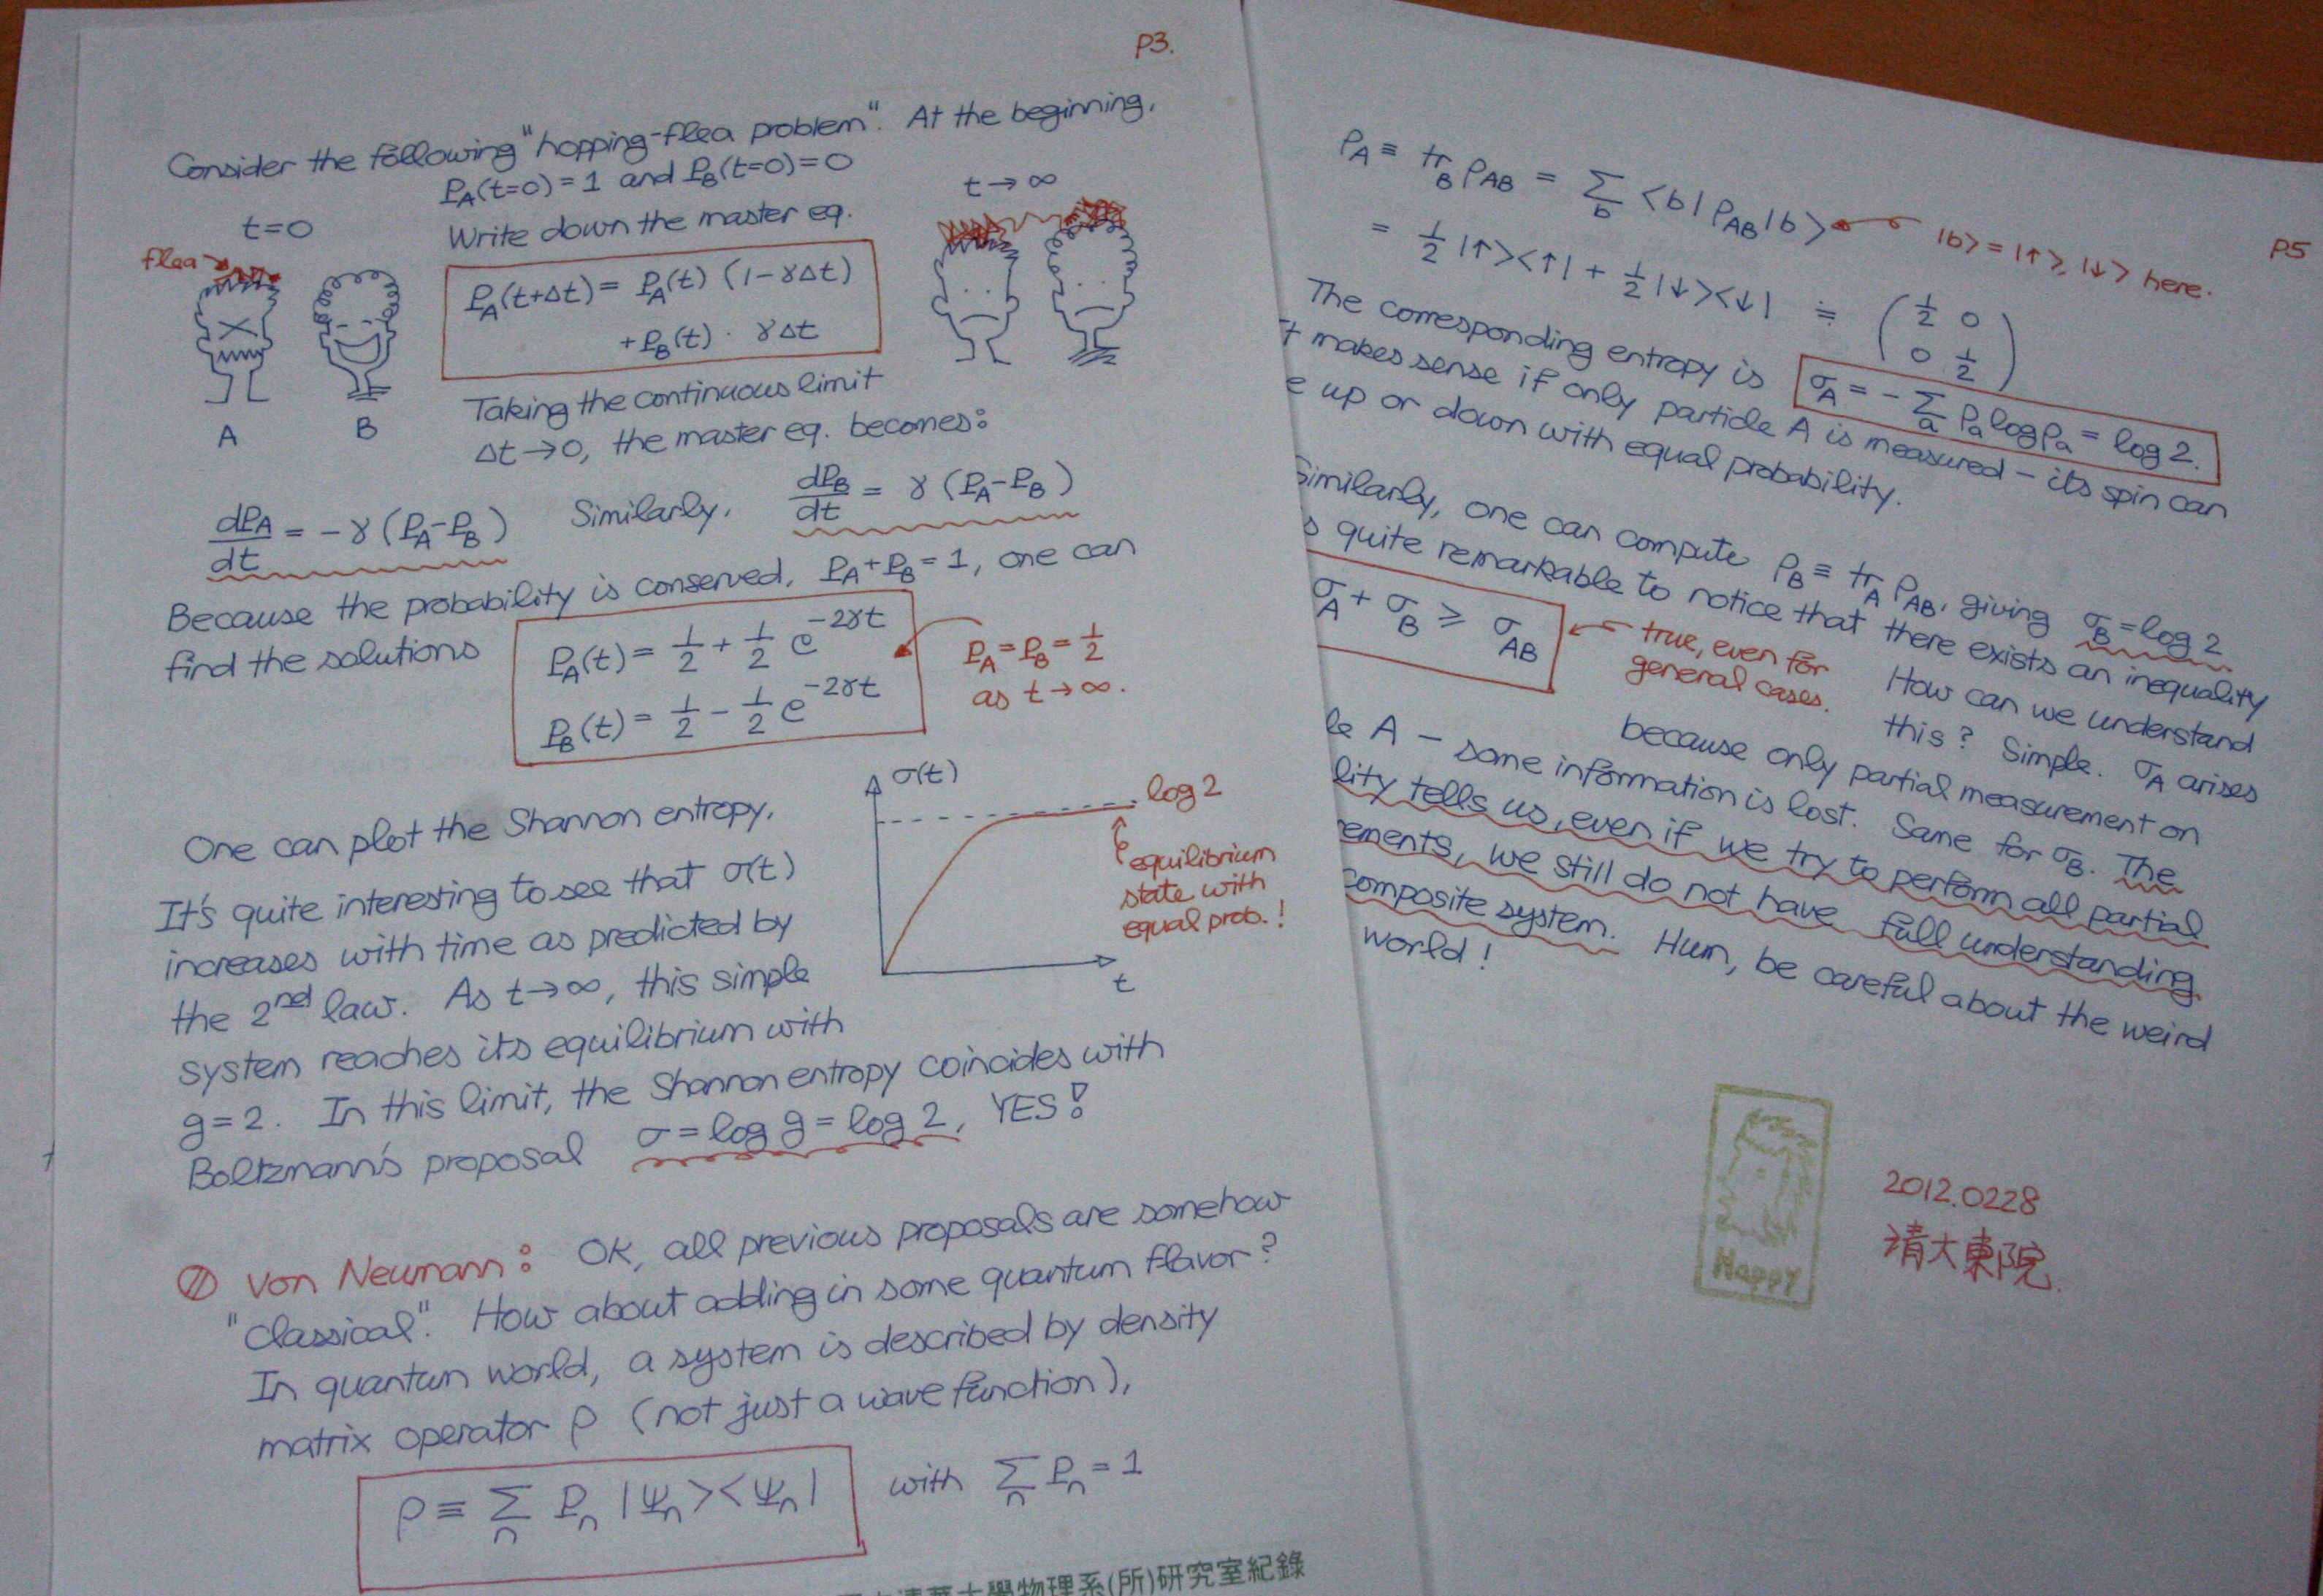 P3.
Consider the following "hopping-flea problem". At the beginning,
P_A(t=0)=1 and P_B(t=0)=0
t=0
t→∞
Write down the master eq.
flea
P_A(t+Δt) = P_A(t) (1-γΔt)
+P_B(t) · γΔt
A
B
Taking the continuous limit
Δt→0, the master eq. becomes:
dP_A/dt = -γ(P_A-P_B) Similarly, dP_B/dt = γ(P_A-P_B)
Because the probability is conserved, P_A+P_B=1, one can
find the solutions
P_A(t) = 1/2 + 1/2 e^{-2γt}
P_B(t) = 1/2 - 1/2 e^{-2γt}
P_A=P_B=1/2
as t→∞.
One can plot the Shannon entropy.
It's quite interesting to see that σ(t)
increases with time as predicted by
the 2nd law. As t→∞, this simple
system reaches its equilibrium with
g=2. In this limit, the Shannon entropy coincides with
Boltzmann's proposal σ = log g = log 2, YES!
σ(t)
log 2
equilibrium
state with
equal prob.!
t
⑦ von Neumann: OK, all previous proposals are somehow
"classical". How about adding in some quantum flavor?
In quantum world, a system is described by density
matrix operator ρ (not just a wave function),
ρ ≡ Σ_n P_n |Ψ_n><Ψ_n| with Σ_n P_n = 1
清華大學物理系(所)研究室紀錄
P5
ρ_A ≡ tr_B ρ_AB = Σ_b <b|ρ_AB|b> |b>=|↑>,|↓> here.
= 1/2 |↑><↑| + 1/2 |↓><↓| ≐ (1/2 0
0 1/2)
The corresponding entropy is σ_A = -Σ_a P_a log P_a = log 2.
makes sense if only particle A is measured – its spin can
up or down with equal probability.
Similarly, one can compute ρ_B ≡ tr_A ρ_AB, giving σ_B = log 2
quite remarkable to notice that there exists an inequality
σ_A + σ_B ≥ σ_AB
true, even for
general cases.
How can we understand
this? Simple. σ_A arises
because only partial measurement on
A – some information is lost. Same for σ_B. The
lity tells us, even if we try to perform all partial
ements, we still do not have full understanding
composite system. Hum, be careful about the weird
world!
Happy
2012.0228
清大東院.